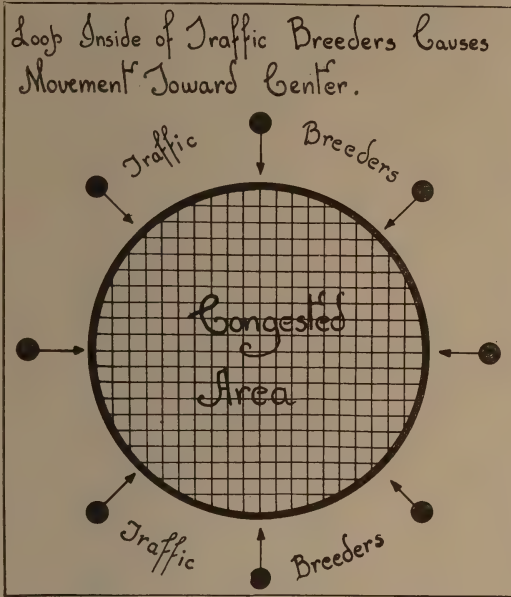 Loop Inside of Traffic Breeders Causes
Movement Toward Center.
Traffic Breeders
Congested
Area
Traffic Breeders